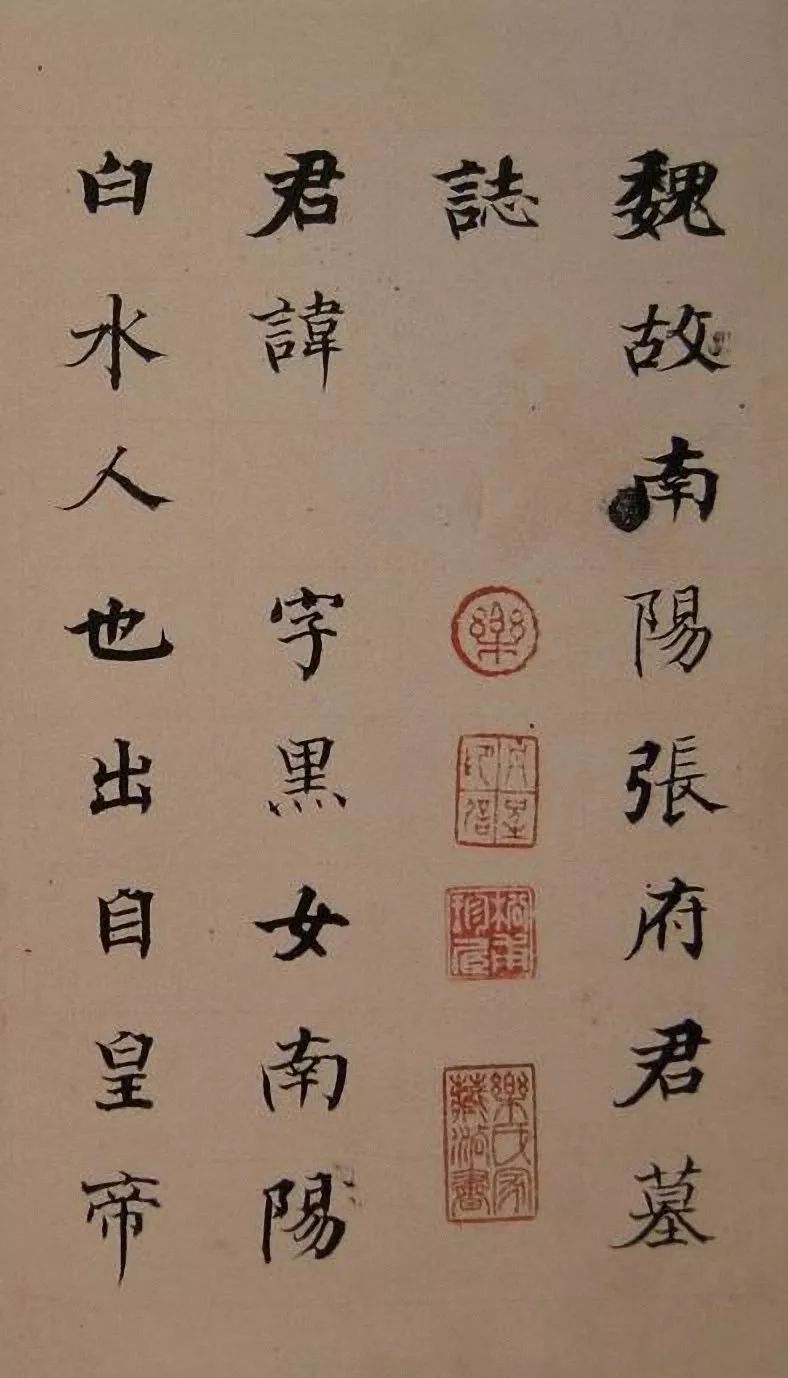 魏故南陽張府君墓
誌
君諱 字黑女南陽
白水人也出自皇帝
樂